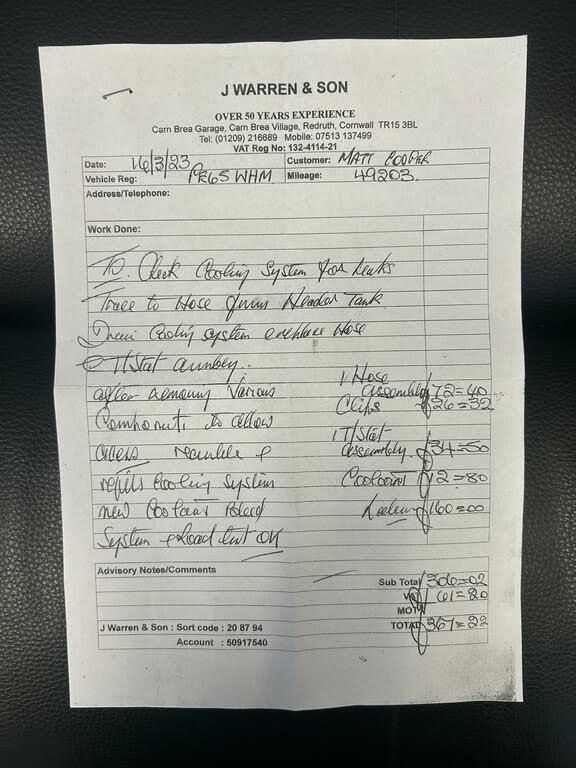 J WARREN & SON
OVER 50 YEARS EXPERIENCE
Carn Brea Garage, Carn Brea Village, Redruth, Cornwall TR15 3BL
Tel: (01209) 216689 Mobile: 07513 137499
VAT Reg No: 132-4114-21
Date: 16/3/23 Customer: MATT COOPER
Vehicle Reg: PE65 WHM Mileage: 49203
Address/Telephone:
Work Done:
TO Check Cooling System for Leaks
Trace to Hose from Header Tank
Drain Cooling System & replace Hose
& T/Stat
after removing Various 1 Hose assembly £72=40
Components to allow Clips £26=32
access 1 T/Stat assembly £34=50
refill Cooling System Coolant £12=80
new Coolant Bleed £160=00
System & Road test OK
Advisory Notes/Comments
Sub Total £306=02
VAT £61=20
MOT
J Warren & Son : Sort code : 20 87 94 TOTAL £367=22
Account : 50917540